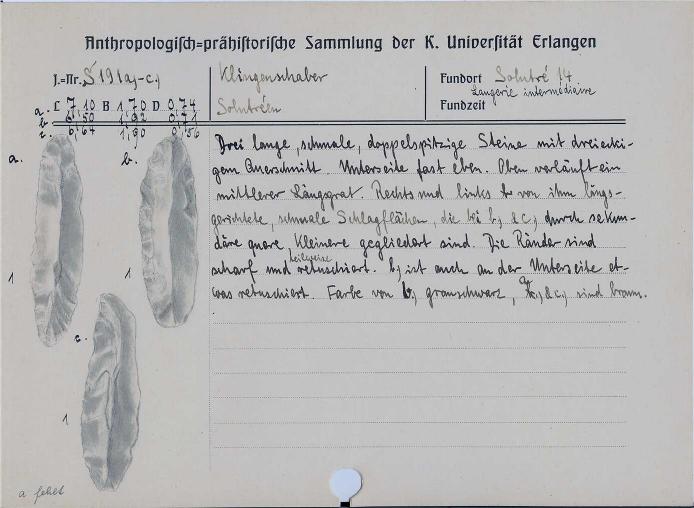 Anthropologisch=prähistorische Sammlung der K. Universität Erlangen
J.=Nr. S 191a,-c,
Klingenschaber
Solutréen
Fundort Solutré 14
Laugerie intermédiaire
Fundzeit
a. L 7,10 B 1,70 D 0,74
b. 6,50 1,92 0,71
c. 6,64 1,90 0,56
Drei lange, schmale, doppelspitzige Steine mit dreiecki-
gem Querschnitt. Unterseite fast eben. Oben verläuft ein
mittlerer Längsgrat. Rechts und links von ihm längs-
gerichtete, schmale Schlagflächen, die bei b, & c, durch sekun-
däre quere, kleinere gegliedert sind. Die Ränder sind
scharf und teilweise retuschiert. b, ist auch an der Unterseite et-
was retuschiert. Farbe von b, grauschwarz, a, & c, sind braun.
a.
b.
1
1
c.
1
a fehlt